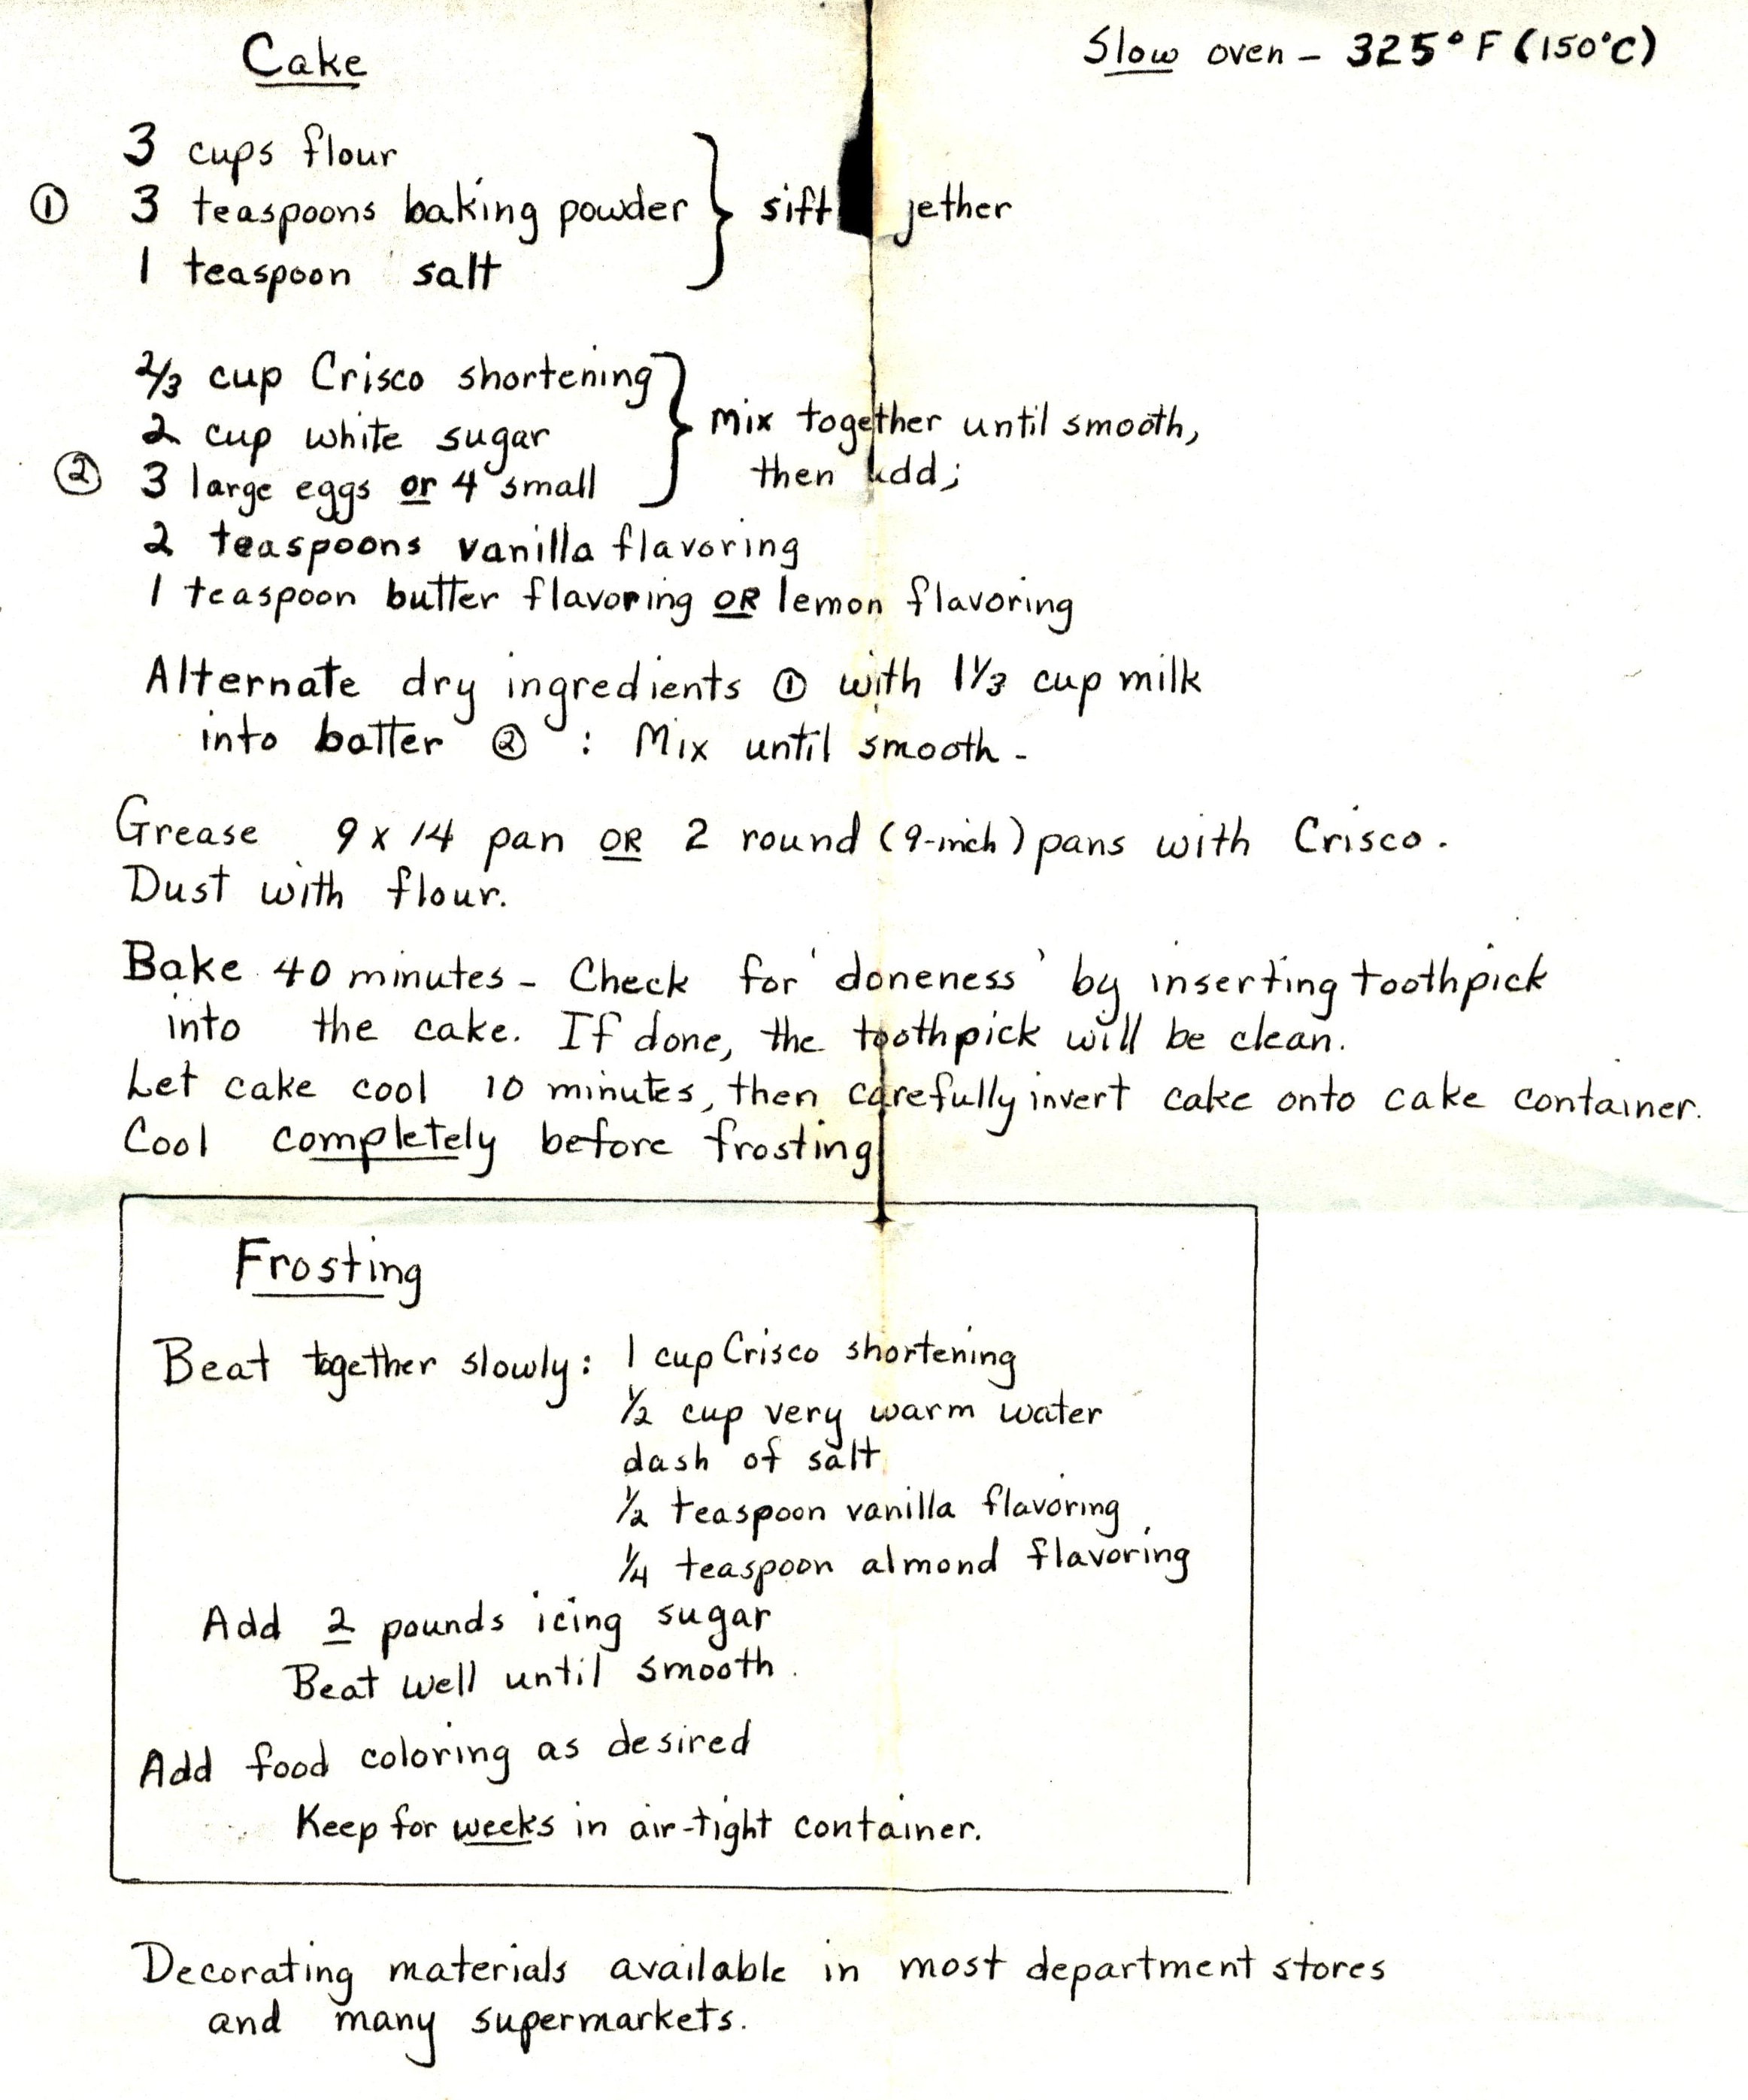 Cake
Slow oven - 325° F (150°C)
3 cups flour
① 3 teaspoons baking powder } sift gether
1 teaspoon salt
2/3 cup Crisco shortening
2 cup white sugar } Mix together until smooth,
then add;
② 3 large eggs or 4 small
2 teaspoons vanilla flavoring
1 teaspoon butter flavoring OR lemon flavoring
Alternate dry ingredients ① with 1 1/3 cup milk
into batter ② : Mix until smooth -
Grease 9 x 14 pan OR 2 round (9-inch) pans with Crisco.
Dust with flour.
Bake 40 minutes - Check for 'doneness' by inserting toothpick
into the cake. If done, the toothpick will be clean.
Let cake cool 10 minutes, then carefully invert cake onto cake container.
Cool completely before frosting
Frosting
Beat together slowly: 1 cup Crisco shortening
1/2 cup very warm water
dash of salt
1/2 teaspoon vanilla flavoring
1/4 teaspoon almond flavoring
Add 2 pounds icing sugar
Beat well until smooth.
Add food coloring as desired
Keep for weeks in air-tight container.
Decorating materials available in most department stores
and many supermarkets.